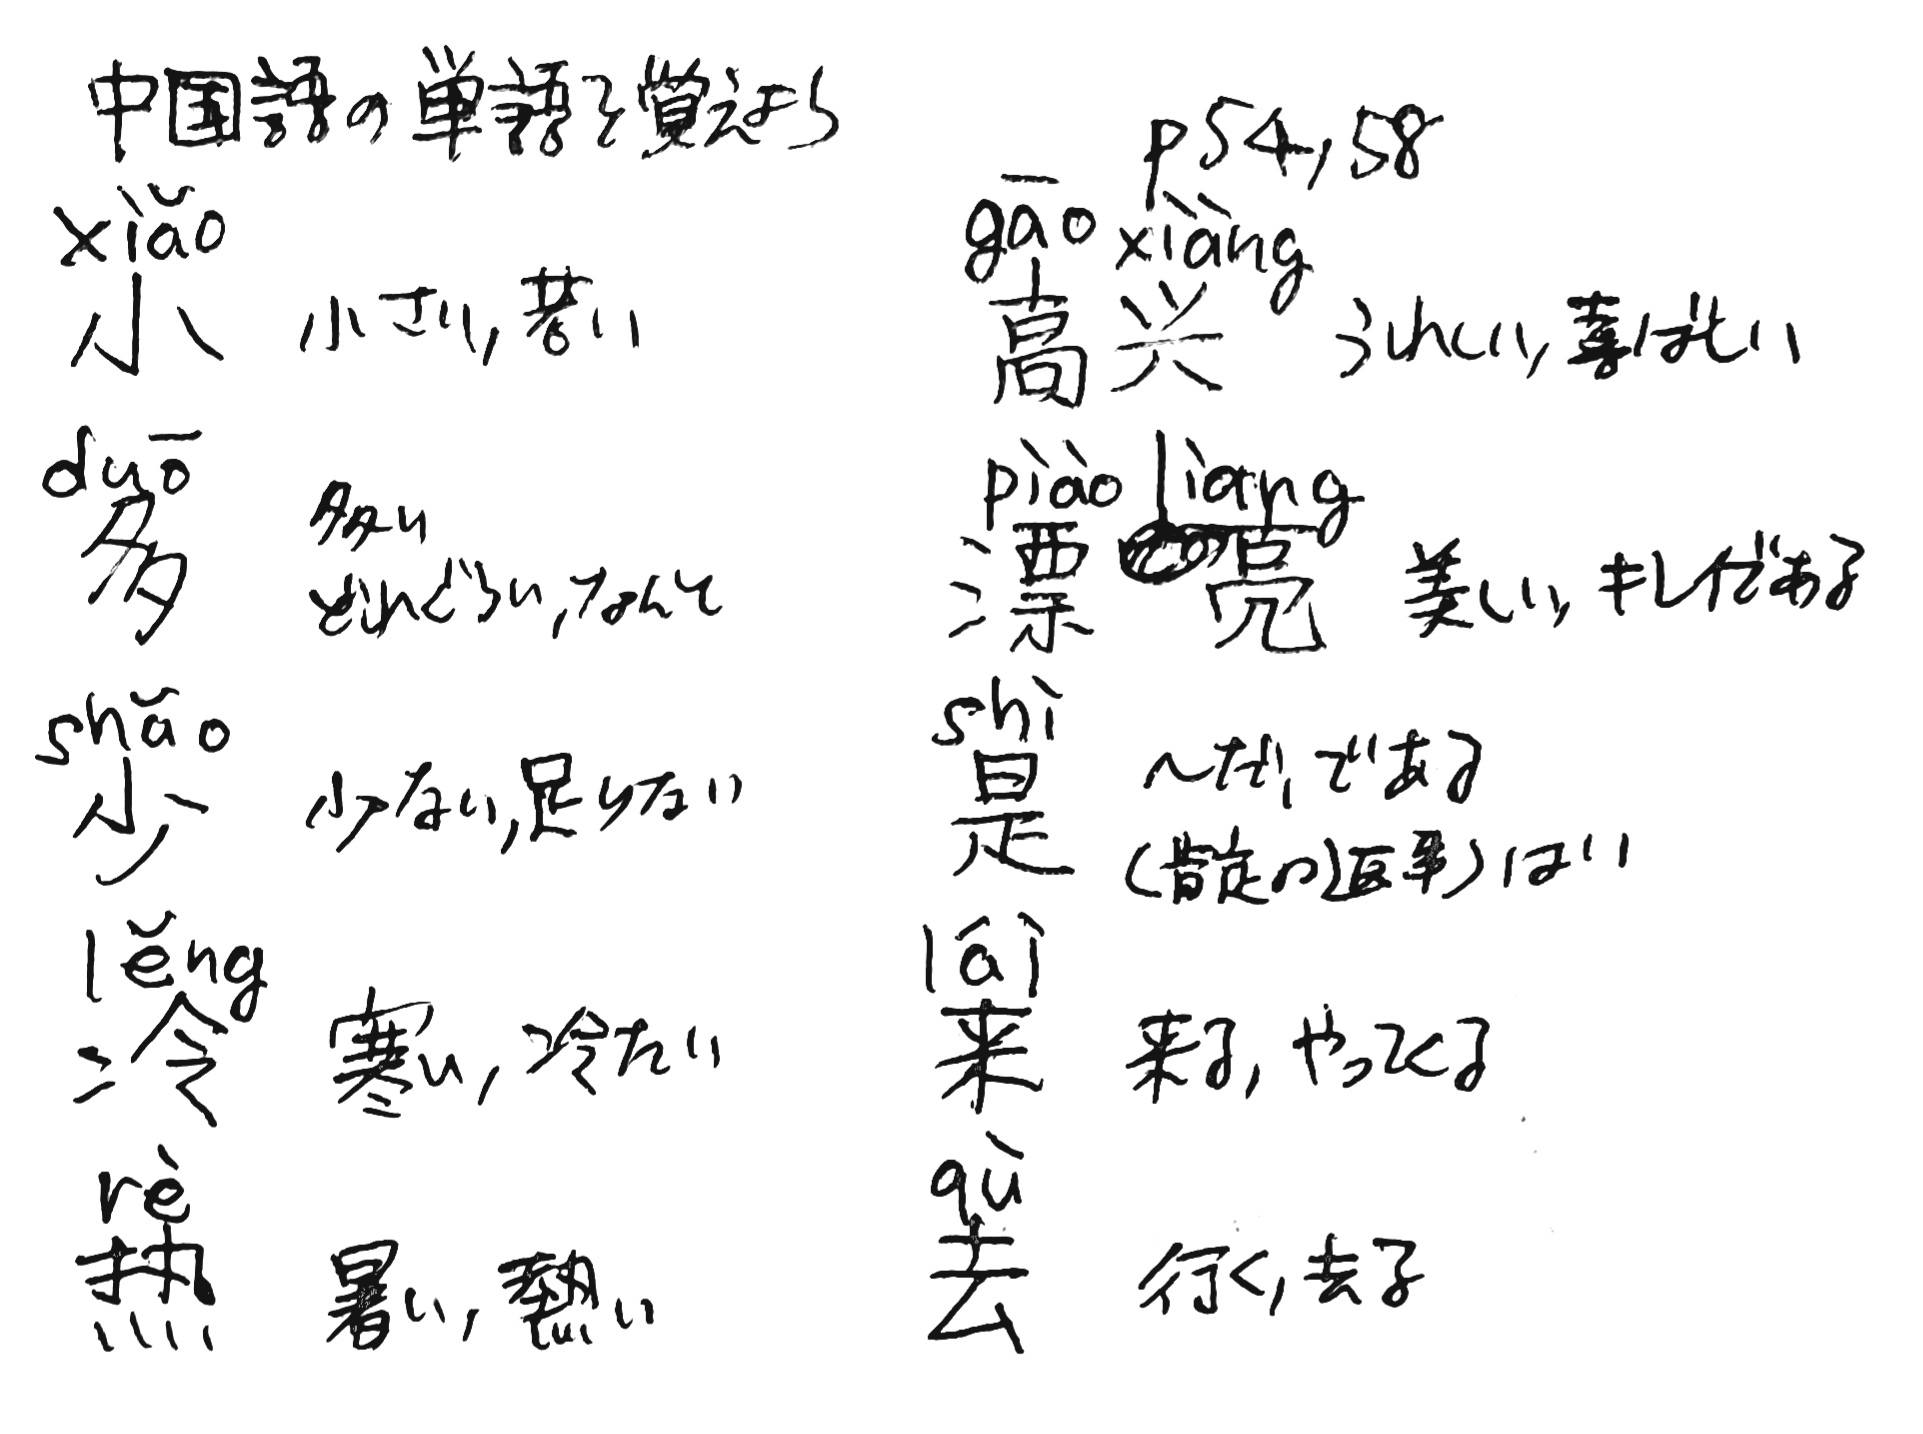 中国語の単語を覚えよう
p54,58
xiǎo
小 小さい,若い
duō
多 多い
どれぐらい,なんて
shǎo
少 少ない,足りない
lěng
冷 寒い,冷たい
rè
热 暑い,熱い
gāo xìàng
高兴 うれしい,喜ばしい
pìào liang
漂亮 美しい,キレイである
shì
是 〜だ,である
(肯定の返事)はい
lái
来 来る,やってくる
qù
去 行く,去る